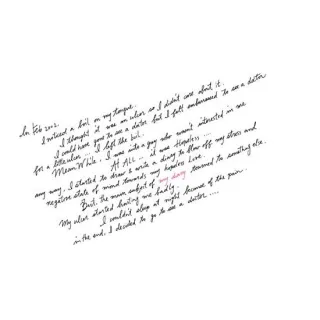 In Feb 2002.
I noticed a boil on my tongue.
I thought it was an ulcer so I didn't care about it.
I could have gone to see a doctor but I felt embarrassed to see a doctor
for a little ulcer ... I left the boil.
Meanwhile, I was into a guy who wasn't interested in me
At All .. it was Hopeless ...
any way, I started to draw & write a diary to blow off my stress and
negative state of mind towards my hopeless Love.
But, the main subject of my diary turned to something else.
My ulcer started hurting me badly.
I couldn't sleep at night because of the pain.
in the end, I decided to go to see a doctor ....